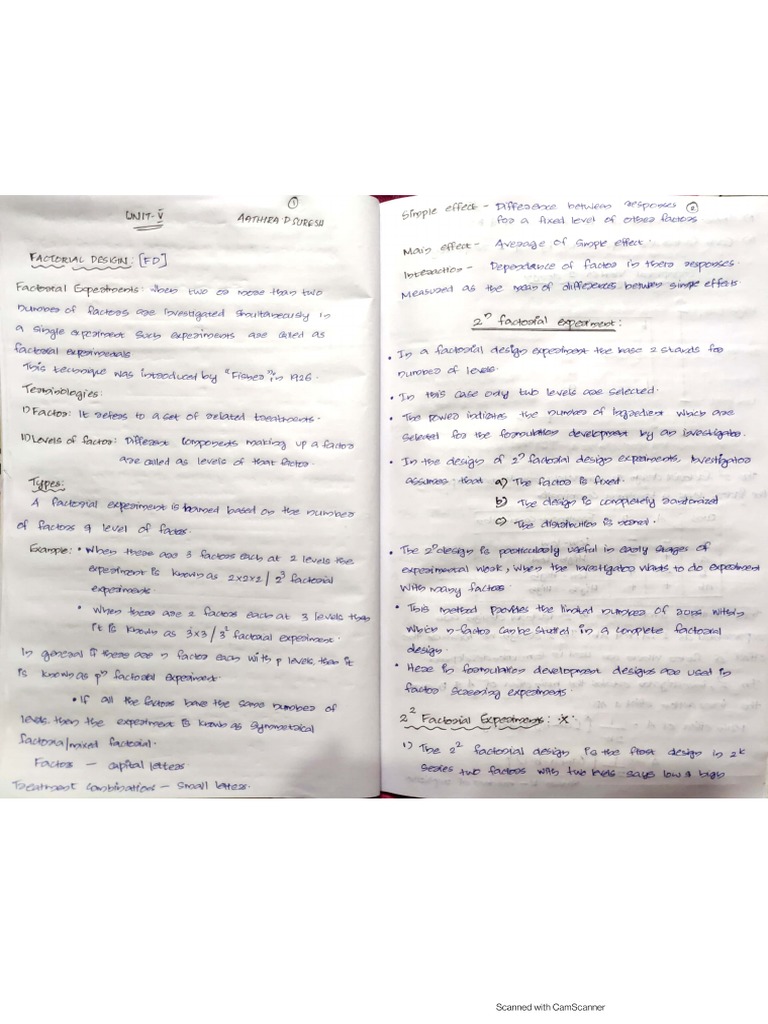 ①
UNIT-V
AATHIRA D SURESH
FACTORIAL DESIGN: [FD]
Factorial Experiments: When two or more than two
number of factors are investigated simultaneously in
a single experiment such experiments are called as
factorial experiments
This technique was introduced by "Fisher" in 1926.
Terminologies:
I) Factor: It refers to a set of related treatments.
II) Levels of factor: Different components making up a factor
are called as levels of that factor.
Types:
A factorial experiment is named based on the number
of factors & level of factor.
Example: • When there are 3 factors each at 2 levels the
experiment is known as 2x2x2 / 2³ factorial
experiments.
• When there are 2 factors each at 3 levels then
it is known as 3x3 / 3² factorial experiment.
In general if there are n factor each with p levels, then it
is known as pⁿ factorial experiment.
• If all the factors have the same number of
levels, then the experiment is known as symmetrical
factorial/mixed factorial.
Factors — capital letters
Treatment combinations — small letters.
②
Simple effect - Difference between responses
for a fixed level of other factors
Main effect - Average of simple effect.
Interaction - Dependance of factor in there responses.
Measured as the mean of differences between simple effects
2ⁿ factorial experiment:
• In a factorial design experiment the base 2 stands for
number of levels.
• In this case only two levels are selected.
• The power indicates the number of ingredient which are
selected for the formulation development by an investigator.
• In the design of 2ⁿ factorial design experiments, investigator
assumes that a) The factor is fixed.
b) The design is completely randomized
c) The distribution is normal.
• The 2ⁿ design is particularly useful in early stages of
experimental work, when the investigator wants to do experiment
with many factors.
• This method provides the limited number of runs within
which n-factor can be studied in a complete factorial
design.
• Here in formulation development designs are used in
factor screening experiments.
2² Factorial Experiments: x
1) The 2² factorial design is the first design in 2ᵏ
series two factors with two levels says low & high
Scanned with CamScanner